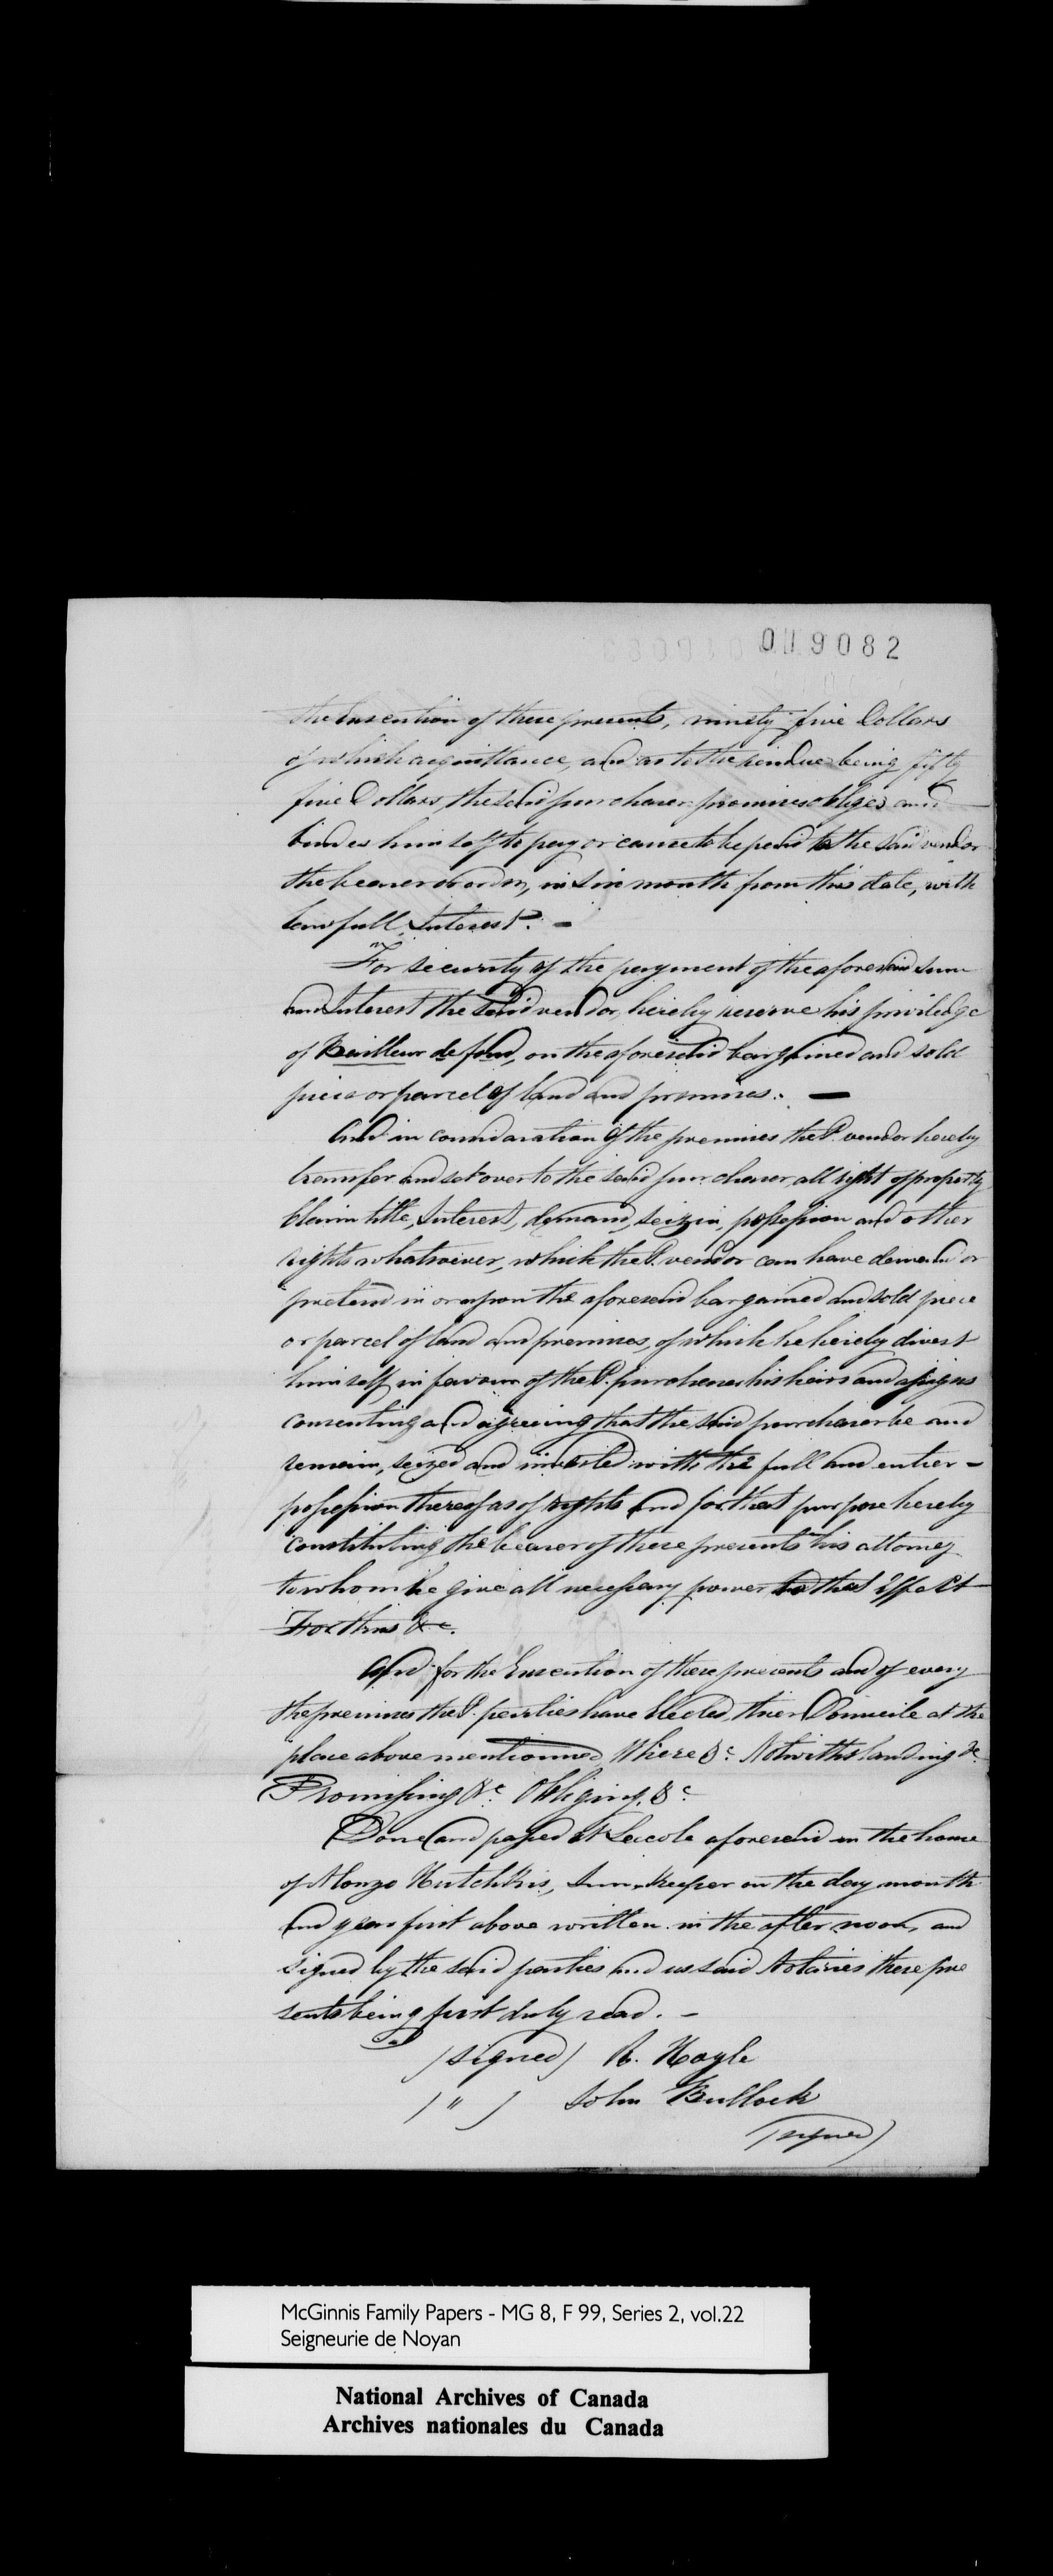 019082
the Execution of these presents, ninety five Dollars
of which acquittance, and as to the residue being fifty
five Dollars, the said purchaser promises obliges and
binds himself to pay or cause to be paid to the said vendor
the bearer or order, in six month from this date, with
lawfull Interest. –
For security of the payment of the aforesaid sum
and Interest the said vendor, hereby reserve his priviledge
of Bailleur de fond, on the aforesaid bargained and sold
piece or parcel of land and premises. —
And in consideration of the premises the S. vendor hereby
transfer and set over to the said purchaser all right of property
Claim title, Interest, demand, seizin, possession and other
rights whatsoever, which the S. vendor can have demand or
pretend in or upon the aforesaid bargained and sold piece
or parcel of land and premises, of which he hereby divest
himself in favour of the S. purchaser his heirs and assigns
consenting and agreeing that the said purchaser be and
remain, seized and invested with the full and entier –
possession thereof as of rights and for that purpose hereby
constituting the bearer of these presents his attorney
to whom he give all necessary power to that Effect
For thus &c.
And for the Execution of these presents and of every
the premises the S. parties have Elected, thier Domicile at the
place above mentionned Where &c Notwithstanding &c
Promissing &c Obliging &c
Done and passed at Lacole aforesaid in the house
of Alonzo Hutchkis, Inn-Keeper on the day month
and year first above written in the afternoon, and
signed by the said parties and us said Notaries these pre
sents being first duly read. –
(signed) R. Hoyle
( " ) John Bullock
(signed)
McGinnis Family Papers - MG 8, F 99, Series 2, vol.22
Seigneurie de Noyan
National Archives of Canada
Archives nationales du Canada